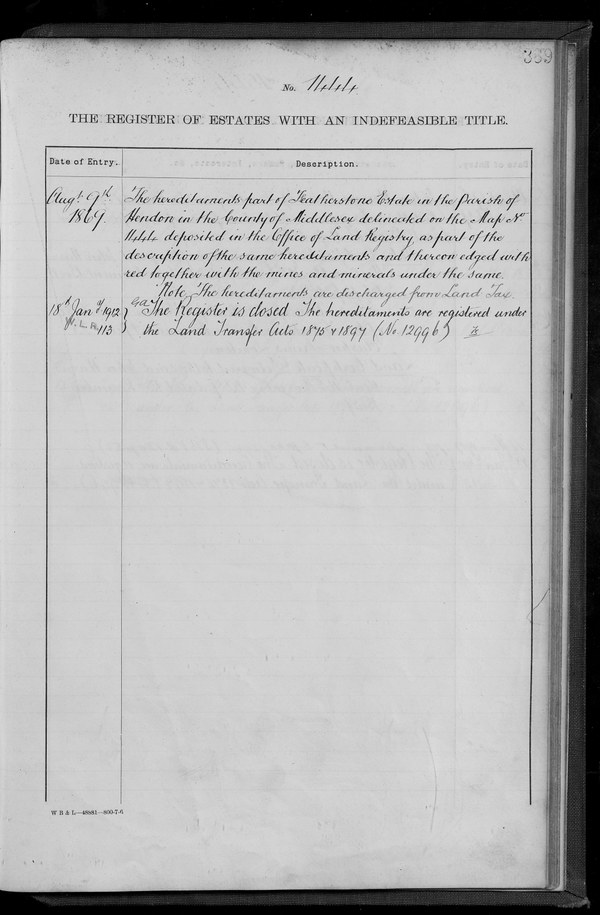 389
No. 1444
THE REGISTER OF ESTATES WITH AN INDEFEASIBLE TITLE.
Date of Entry. Description.
Augt. 9th The hereditaments part of Featherstone Estate in the Parish of
1869. Hendon in the County of Middlesex delineated on the Map No
1444 deposited in the Office of Land Registry as part of the
description of the same hereditaments and thereon edged with
red together with the mines and minerals under the same.
Note, The hereditaments are discharged from Land Tax.
18th Jany 1912 The Register is closed The hereditaments are registered under
113 the Land Transfer Acts 1875 & 1897 (No 12996)
W B & L—48881—800-7-6